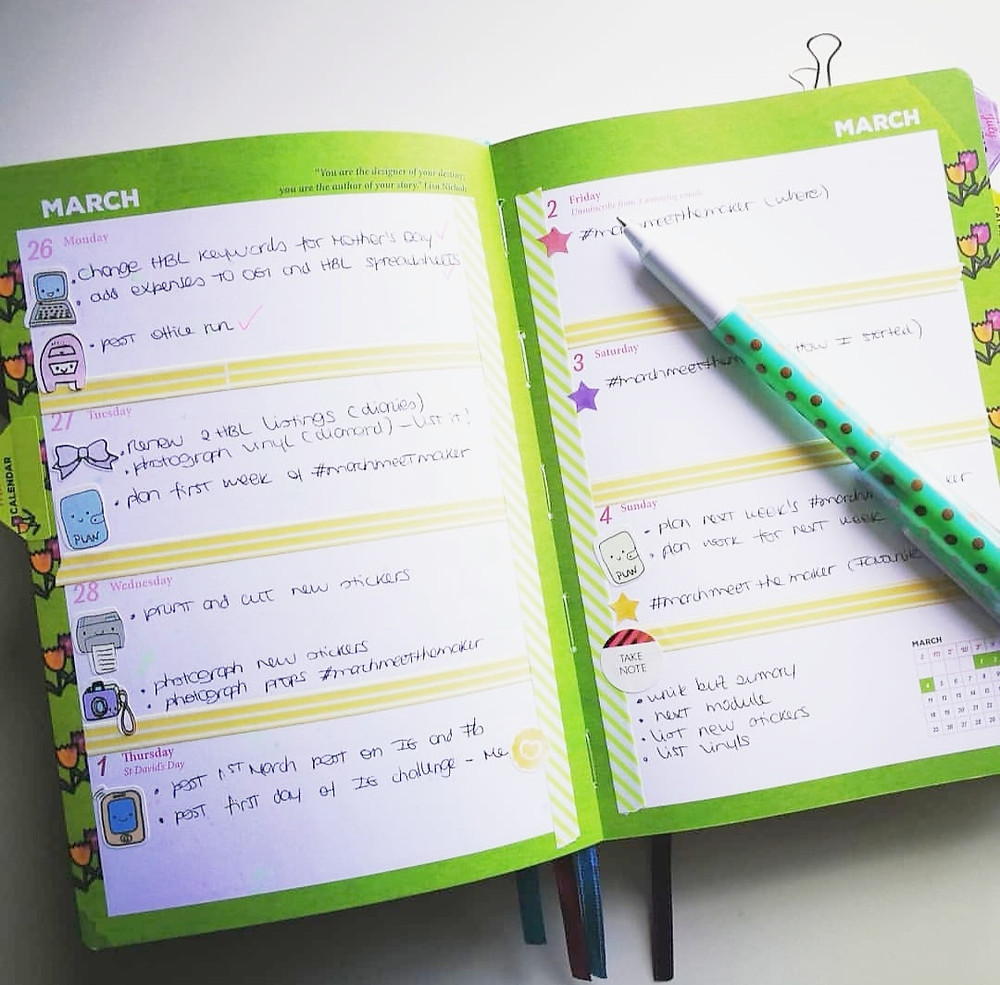 MARCH
"You are the designer of your destiny,
you are the author of your story." Lisa Nichols
26 Monday
• change HBL keywords for Mother's Day ✓
• add expenses to OGT and HBL spreadsheets
• post office run ✓
27 Tuesday
• Renew 2 HBL listings (diaries)
• photograph vinyl (diamond) – list it!
• plan first week of #marchmeetmaker
PLAN
CALENDAR
28 Wednesday
• print and cut new stickers
• photograph new stickers
• photograph props #marchmeetthemaker
1 Thursday
St David's Day
• post 1st March post on IG and Fb
• post first day of IG challenge - Me
MARCH
2 Friday
Unsubscribe from 3 annoying emails
#marchmeetthemaker (where)
3 Saturday
(How I started)
4 Sunday
• plan next week's
• plan work for next week
PLAN
#marchmeet the maker (Favourite
TAKE
NOTE
• next module
• list new stickers
• list vinyls
MARCH